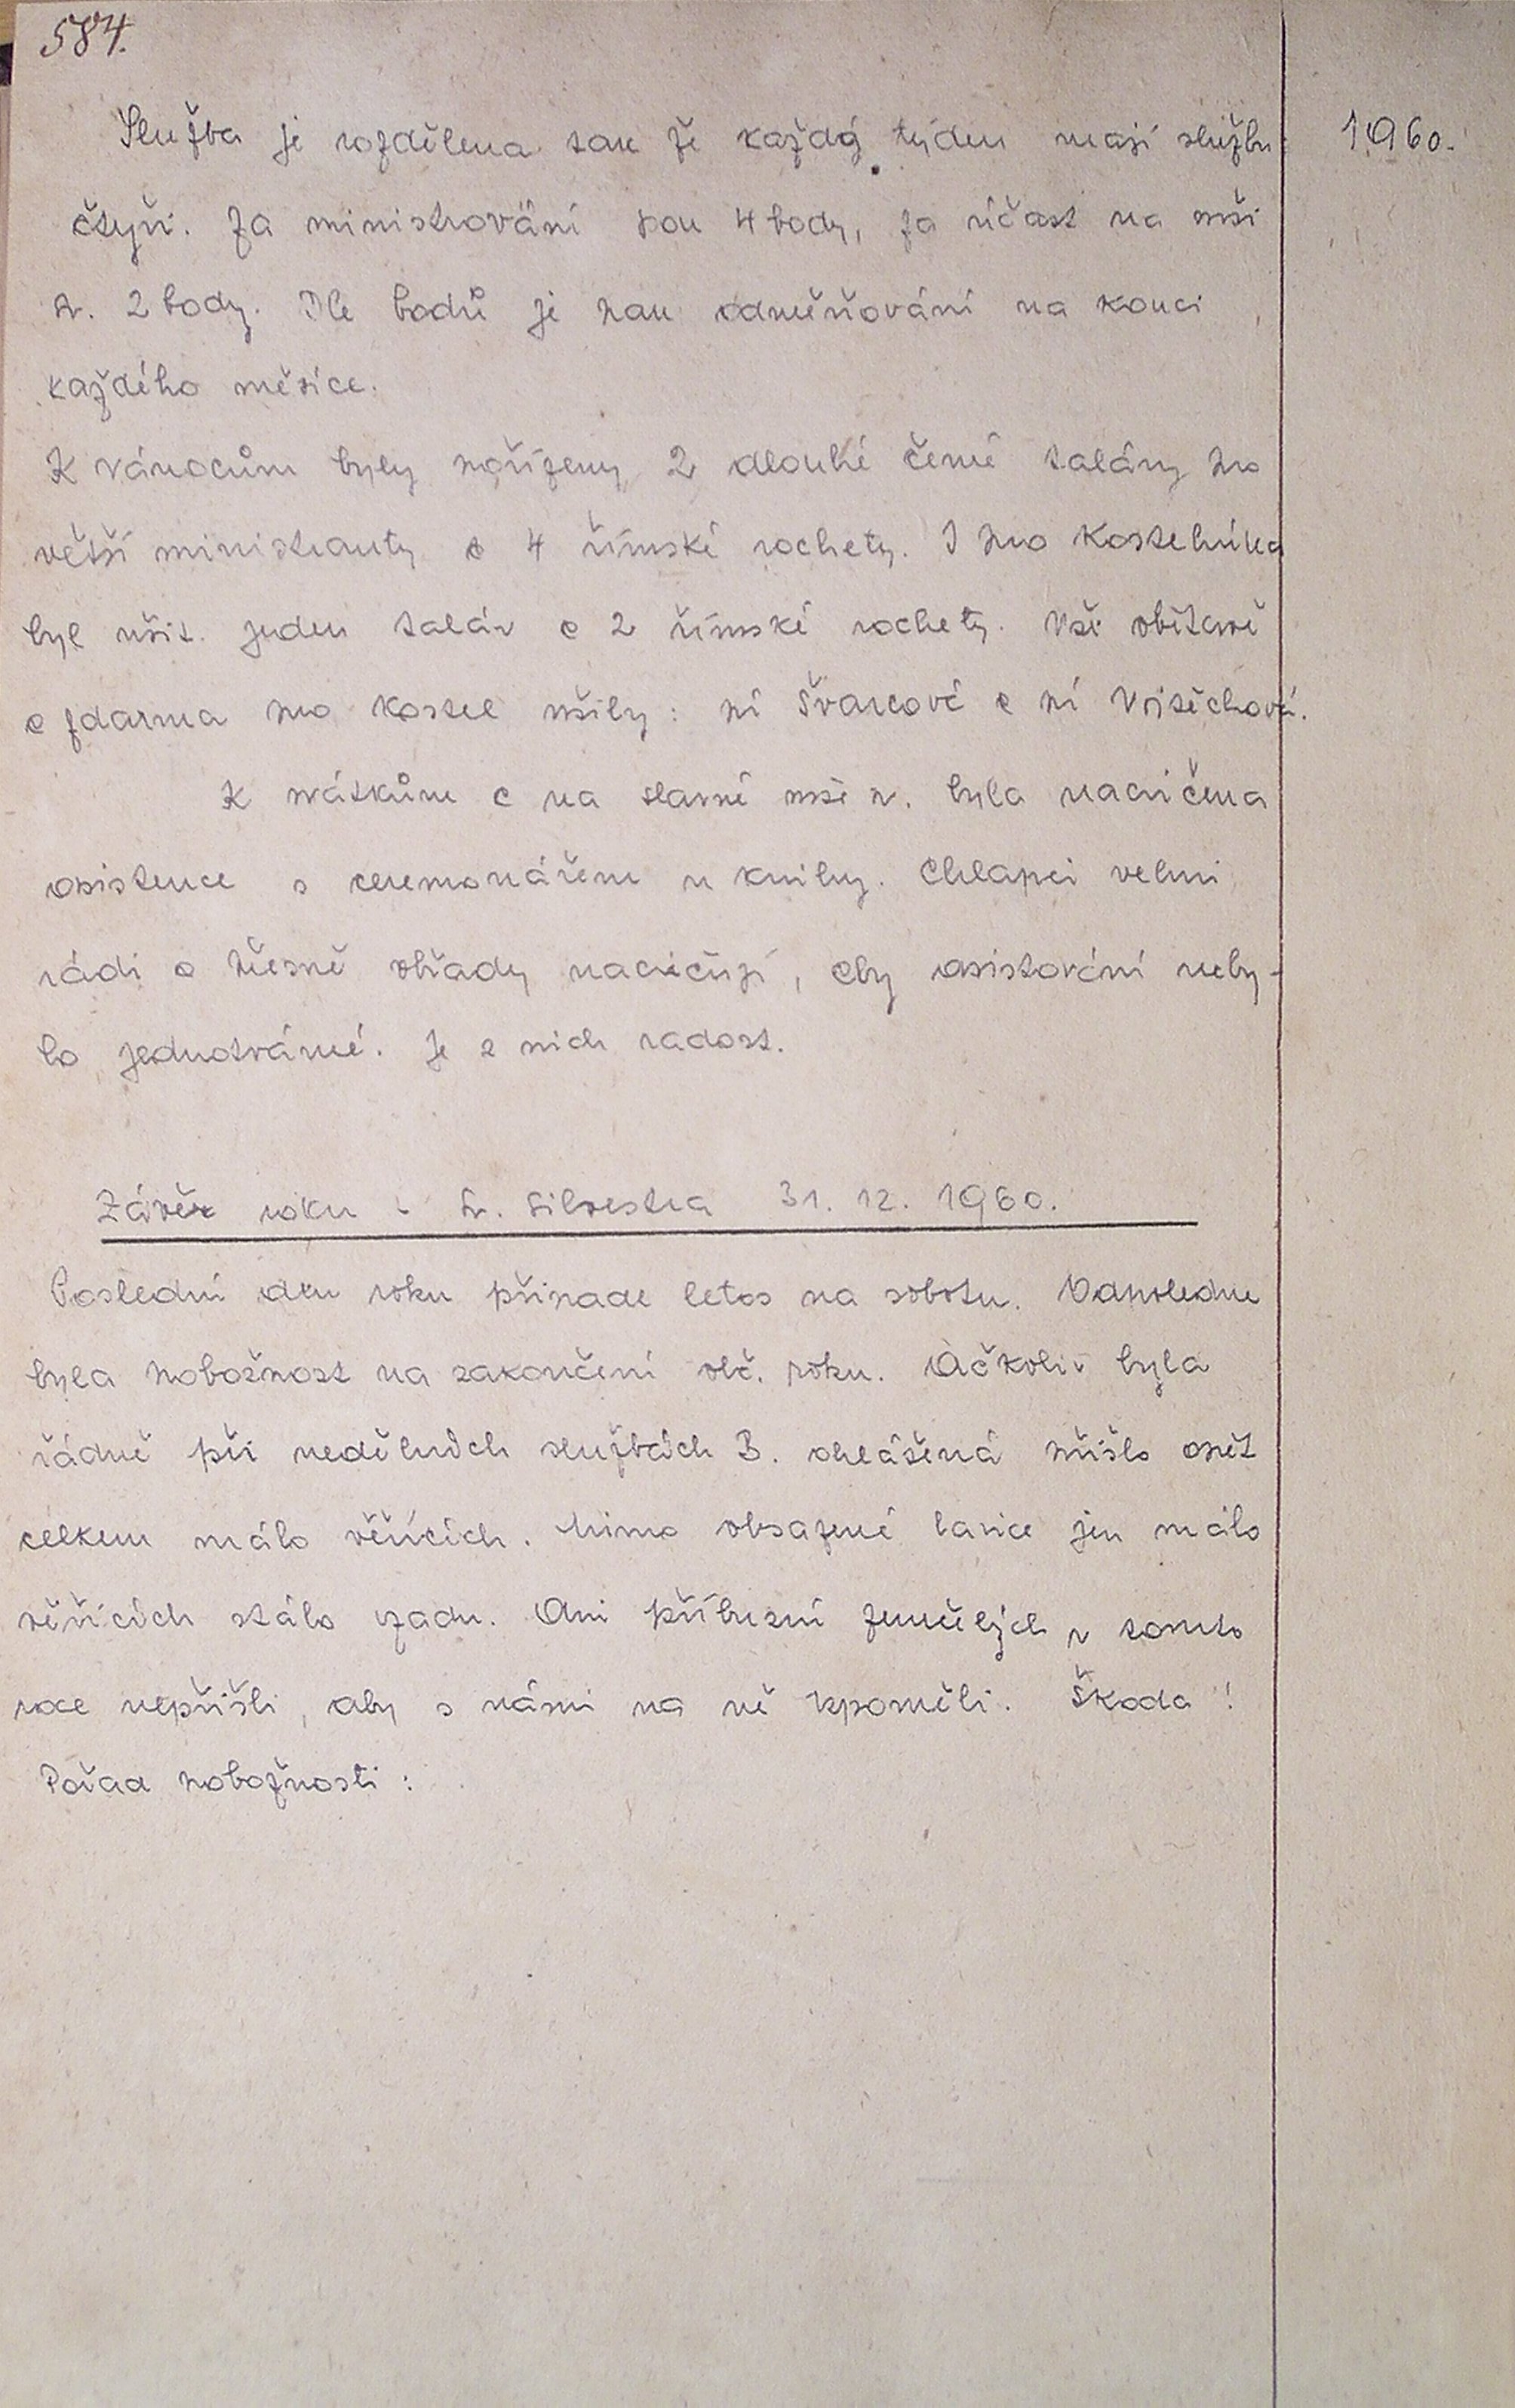 584.
1960.
Služba je rozdělena tak že každý týden mají službu
čtyři. Za ministrování jsou 4 body, za účast na mši
sv. 2 body. Dle bodů je pak odměňování na konci
každého měsíce.
K vánocům byly pořízeny 2 dlouhé černé taláry pro
větší ministranty a 4 římské rochety. I pro kostelníka
byl ušit jeden talár a 2 římské rochety. Vše obětavě
a zdarma pro kostel ušily: pí Švarcová a pí Vojtěchová.
K svátkům a na slavné mše sv. byla nacvičena
asistence s ceremonářem u knihy. Chlapci velmi
rádi a přesně obřady nacvičují, aby asistování neby-
lo jednotvárné. Je z nich radost.
Závěr roku - Sv. Silvestra 31. 12. 1960.
Poslední den roku připadl letos na sobotu. Odpoledne
byla pobožnost na zakončení obč. roku. Ačkoliv byla
řádně při nedělních službách B. ohlášená přišlo opět
celkem málo věřících. Mimo obsazené lavice jen málo
věřících stálo vzadu. Ani příbuzní zemřelých v tomto
roce nepřišli, aby s námi na ně vzpoměli. Škoda!
Pořad pobožnosti: